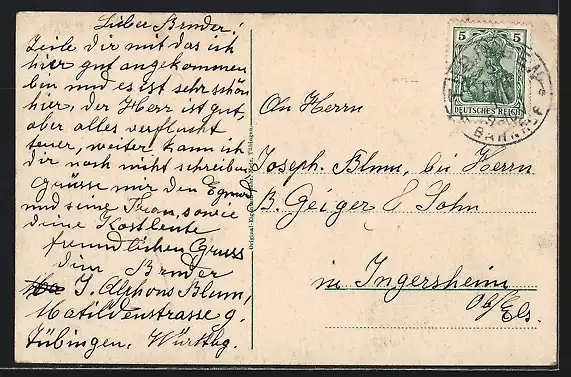 Lieber Bruder!
Teile dir mit das ich
hier gut angekommen
bin und es ist sehr schön
hier, der Herr ist gut,
aber alles verflucht
teuer, weiter kann ich
dir noch nicht schreiben
Grüsse mir den
und seine Frau, sowie
deine Kostleute
freundlichen Gruss
dein Bruder
J. Alphons Blum,
Matildenstrasse 9.
Tübingen. Württbg.
5 5
DEUTSCHES REICH
BAHNHOF
An Herrn
Joseph Blum, bei Herrn
B. Geiger & Sohn
in Ingersheim
Ob/Els.